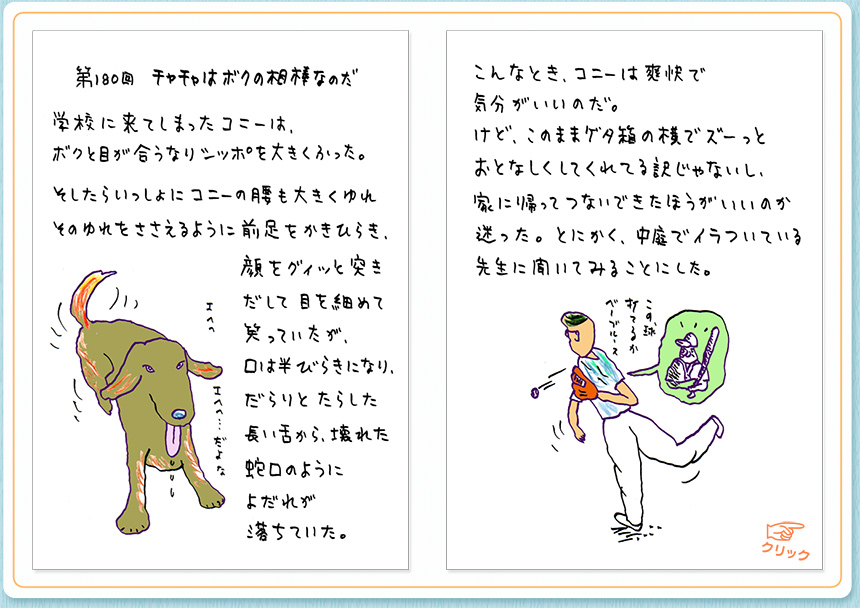 第180回 チャチャはボクの相棒なのだ
学校に来てしまったコニーは、
ボクと目が合うなりシッポを大きくふった。
そしたらいっしょにコニーの腰も大きくゆれ
そのゆれをささえるように前足をかきひらき、
顔をグィッと突き
だして目を細めて
笑っていたが、
口は半びらきになり、
だらりとたらした
長い舌から、壊れた
蛇口のように
よだれが
落ちていた。
エヘヘ
エヘヘ…だよな
こんなとき、コニーは爽快で
気分がいいのだ。
けど、このままゲタ箱の横でズーっと
おとなしくしてくれてる訳じゃないし、
家に帰ってつないできたほうがいいのか
迷った。とにかく、中庭でイラついている
先生に聞いてみることにした。
この球
打てるか
ベーブルース
クリック